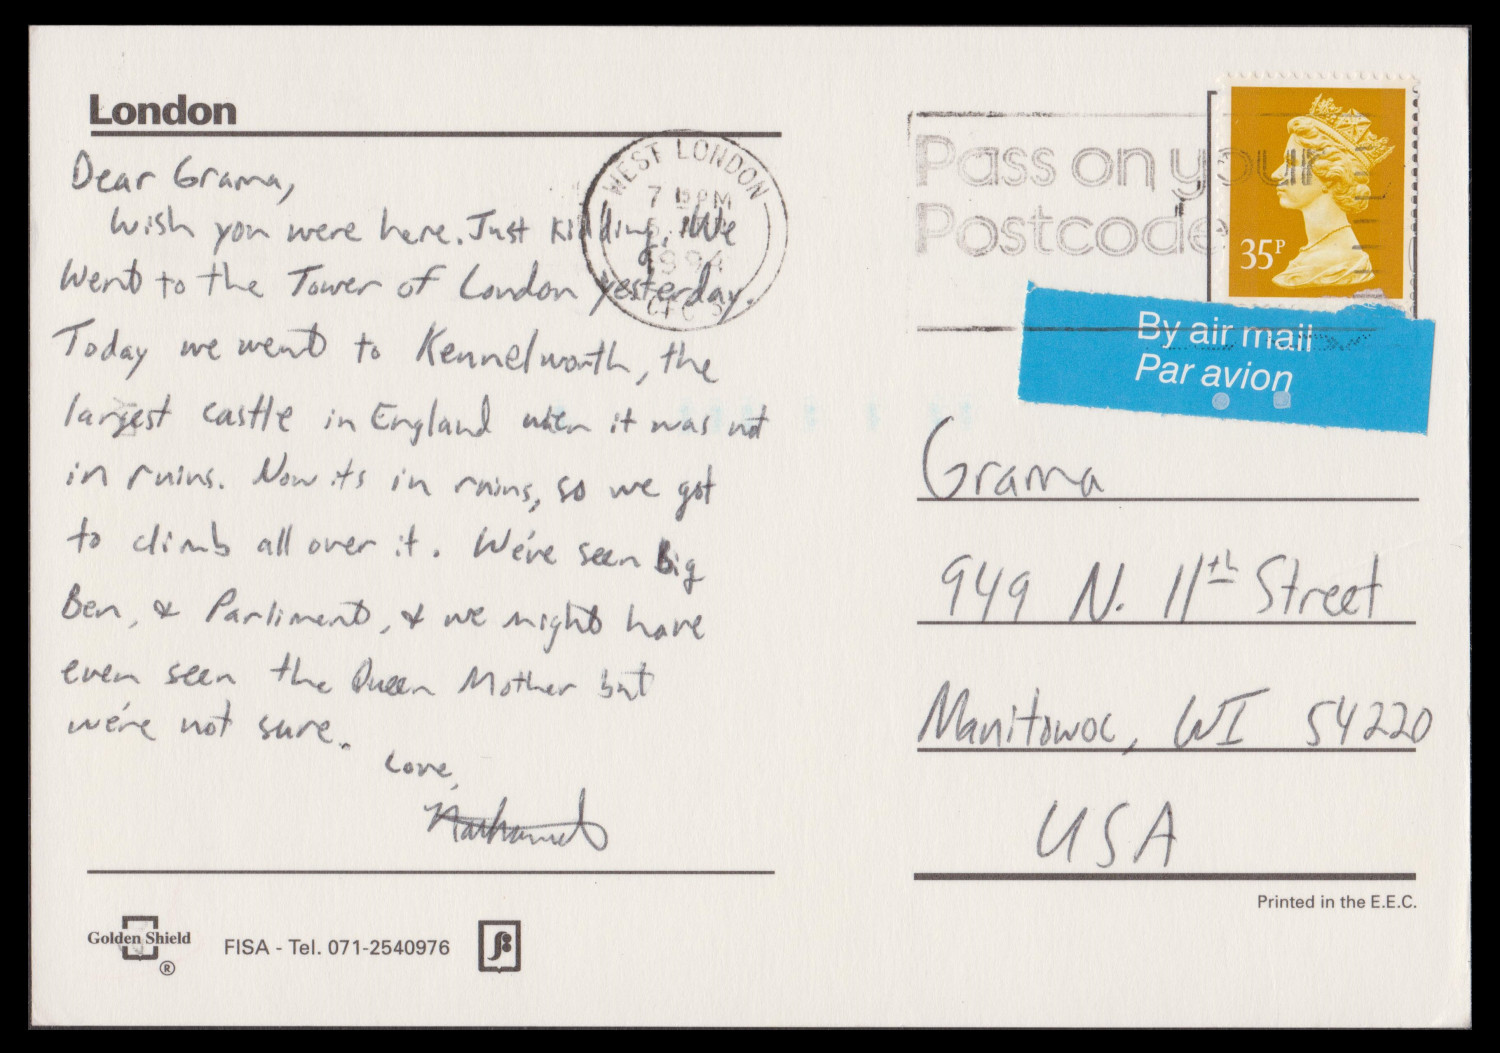 London
Dear Grama,
Wish you were here. Just kidding. We
went to the Tower of London yesterday.
Today we went to Kennelworth, the
largest castle in England when it was not
in ruins. Now its in ruins, so we got
to climb all over it. We've seen Big
Ben, & Parliment, & we might have
even seen the Queen Mother but
we're not sure.
Love,
Nathaniel
Golden Shield
®
FISA - Tel. 071-2540976
WEST LONDON
7 PM
1994
Pass on your
Postcode
35P
By air mail
Par avion
Grama
949 N. 11th Street
Manitowoc, WI 54220
USA
Printed in the E.E.C.